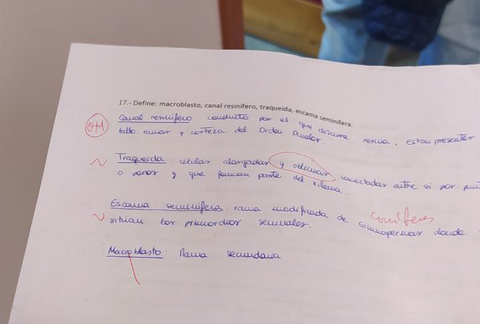 17.- Define: macroblasto, canal resinífero, traqueida, escama seminífera.
OM Canal resinífero conducto por el que discurre resina. Están presentes
tallo y corteza del
~ Traqueida células alargadas y conectadas entre sí por
o poros y que forman parte del xilema.
Coníferas
~ Escama seminífera rama modificada de donde
sitúan los primordios seminales.
Macroblasto Rama secundaria